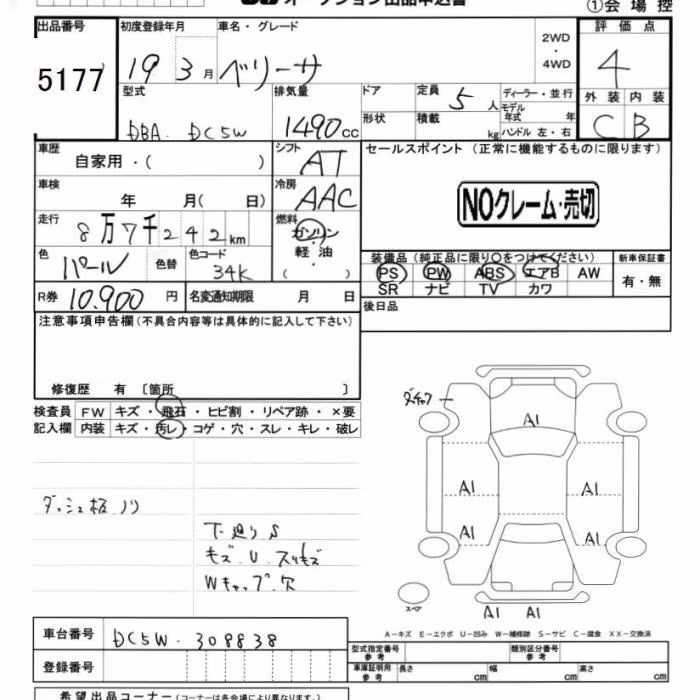 オークション出品申込書
①会場控
出品番号 5177
初度登録年月 19 3月
車名・グレード ベリーサ
2WD・4WD
評価点 4
外装 C 内装 B
型式 DBA DC5W
排気量 1490cc
ドア
形状
定員 5人
積載 kg
ディーラー・並行
モデル年式 年
ハンドル 左・右
車歴 自家用・( )
シフト AT
セールスポイント(正常に機能するものに限ります)
NOクレーム・売切
車検 年 月( 日)
冷房 AAC
走行 8万7千242km
燃料 ガソリン
軽油
( )
色 パール 色替
色コード 34K
装備品(純正品に限り○をつけてください)
PS PW ABS エアB AW
SR ナビ TV カワ
新車保証書
有・無
R券 10,900円
名変通知期限 月 日
後日品
注意事項申告欄(不具合内容等は具体的に記入して下さい)
修復歴 有〔箇所 〕
検査員記入欄
FW キズ・飛石・ヒビ割・リペア跡・×要
内装 キズ・汚レ・コゲ・穴・スレ・キレ・破レ
ダッシュ板ノリ
下廻りS
キズ.U.スリキズ
Wキャップ穴
A1
A1 A1
A1 A1
スペア
A1 A1
A-キズ E-エクボ U-凹み W-補修跡 S-サビ C-腐食 XX-交換済
車台番号 DC5W-308838
登録番号
型式指定番号 参考
類別区分番号 参考
車庫証明用 参考 長さ cm 幅 cm 高さ cm
希望出品コーナー(コーナーは各会場により異なります。)